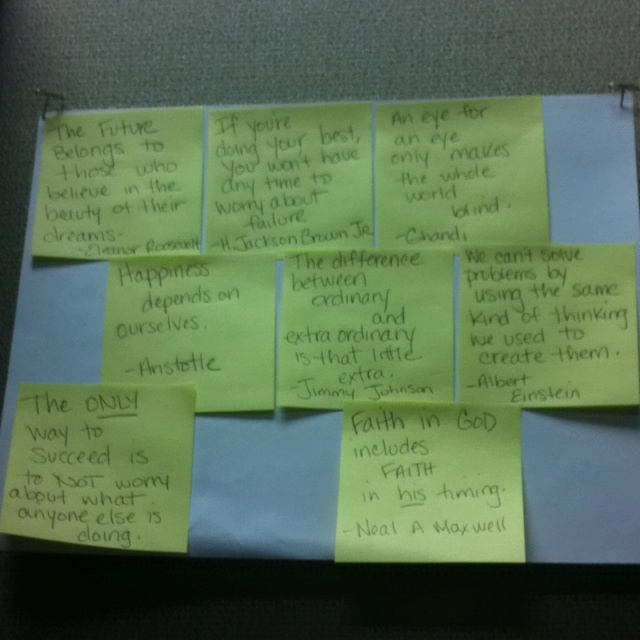 The Future
Belongs to
those who
believe in the
beauty of their
dreams.
-Eleanor Roosevelt
If you're
doing your best,
you won't have
any time to
worry about
failure
-H. Jackson Brown Jr.
An eye for
an eye
only makes
the whole
world
blind.
-Ghandi
Happiness
depends on
ourselves.
-Aristotle
The difference
between
ordinary
and
extraordinary
is that little
extra.
-Jimmy Johnson
We can't solve
problems by
using the same
kind of thinking
we used to
create them.
-Albert
Einstein
The ONLY
way to
Succeed is
to NOT worry
about what
anyone else is
doing.
Faith in GOD
includes
FAITH
in his timing.
-Neal A Maxwell